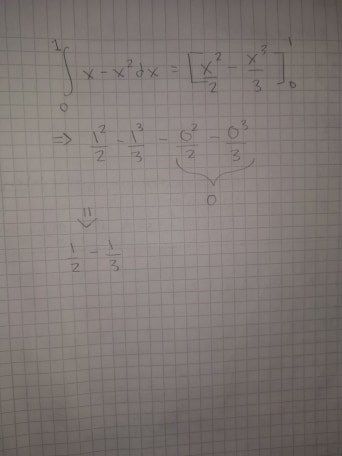 ∫₀¹ x - x² dx = [x²/2 - x³/3]₀¹
⇒ 1²/2 - 1³/3 - 0²/2 - 0³/3
0
⇓
1/2 - 1/3